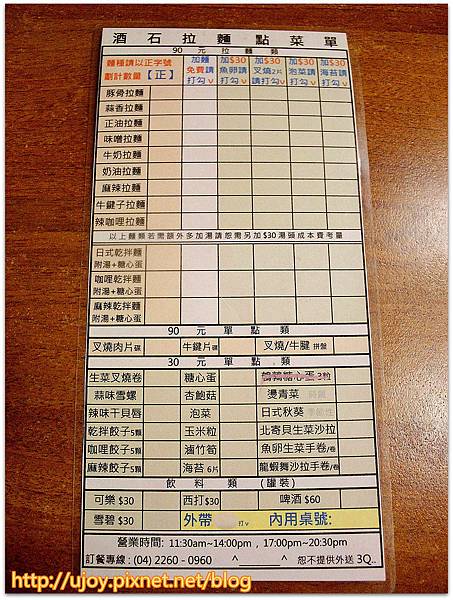 酒石拉麵點菜單
90 元 拉 麵 類
麵種請以正字號劃計數量【正】 加麵免費請打勾v 加$30魚卵請打勾v 加$30叉燒2片請打勾v 加$30泡菜請打勾v 加$30海苔請打勾v
豚骨拉麵
蒜香拉麵
正油拉麵
味噌拉麵
牛奶拉麵
奶油拉麵
麻辣拉麵
牛腱子拉麵
辣咖哩拉麵
以上麵類若需額外多加湯請恕需另加$30湯頭成本費考量
日式乾拌麵
附湯+糖心蛋
咖哩乾拌麵
附湯+糖心蛋
麻辣乾拌麵
附湯+糖心蛋
90 元 單 點 類
叉燒肉片碟 牛腱片碟 叉燒/牛腱 拼盤
30 元 單 點 類
生菜叉燒卷 糖心蛋 鵪鶉糖心蛋 3粒
蒜味雪螺 杏鮑菇 燙青菜
辣味干貝唇 泡菜 日式秋葵 季節性
乾拌餃子5顆 玉米粒 北寄貝生菜沙拉
咖哩餃子5顆 滷竹筍 魚卵生菜手卷/卷
麻辣餃子5顆 海苔 6片 龍蝦舞沙拉手卷/卷
飲 料 類 (罐裝)
可樂 $30 西打$30 啤酒 $60
雪碧 $30 外帶 打v 內用桌號:
營業時間: 11:30am~14:00pm , 17:00pm~20:30pm
訂餐專線 : (04) 2260 - 0960 ^_____^ 恕不提供外送 3Q..
http://ujoy.pixnet.net/blog